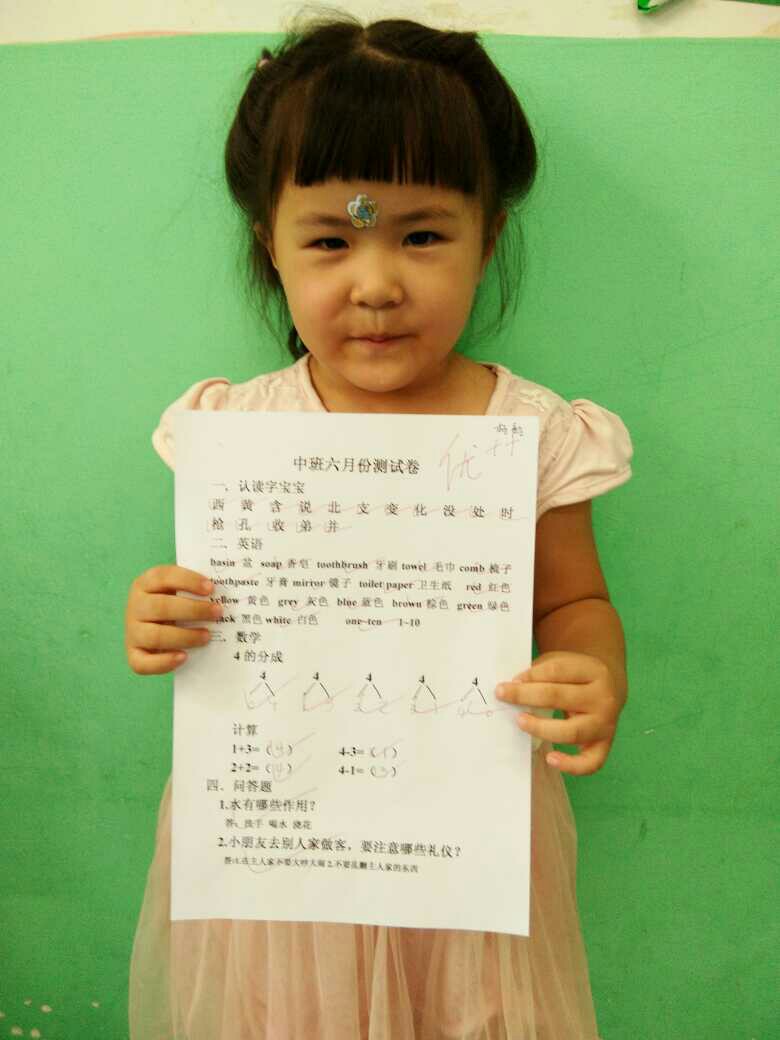 优++
中班六月份测试卷
一、认读字宝宝
西 黄 含 说 北 支 变 化 没 处 时
枪 孔 收 弟 并
二、英语
basin 盆 soap 香皂 toothbrush 牙刷 towel 毛巾 comb 梳子
toothpaste 牙膏 mirror 镜子 toilet paper 卫生纸 red 红色
yellow 黄色 grey 灰色 blue 蓝色 brown 棕色 green 绿色
black 黑色 white 白色 one-ten 1-10
三、数学
4 的分成
4 4 4 4 4
计算
1+3=（4） 4-3=（1）
2+2=（4） 4-1=（3）
四、问答题
1.水有哪些作用？
答：洗手 喝水 浇花
2.小朋友去别人家做客，要注意哪些礼仪？
答:1.在主人家不要大吵大闹 2.不要乱翻主人家的东西